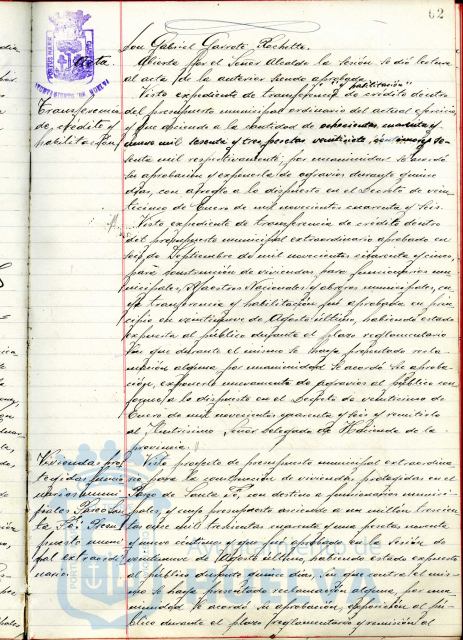 62
Don Gabriel Garrote Rochette.
Acta.
Abierta por el Señor Alcalde la Sesión, se dió lectura
al acta de la anterior siendo aprobada.
y habilitación
Transferencia
de crédito y
habilitación
Visto expediente de transferencia de crédito dentro
del presupuesto municipal ordinario del actual ejercicio,
y que asciende a la cantidad de ochocientas cuarenta y
nueve mil sesenta y tres pesetas veintisiete céntimos
senta mil respectivamente; por unanimidad se acordó
su aprobación y exponerla de agravios durante quince
días, con arreglo a lo dispuesto en el Decreto de vein
ticinco de Enero de mil novecientos cuarenta y seis.
Visto expediente de transferencia de crédito dentro
del presupuesto municipal extraordinario aprobado en
seis de Septiembre de mil novecientos cincuenta y cinco,
para construcción de viviendas para funcionarios mu
nicipales, Maestros Nacionales y obreros municipales, cu
ya transferencia y habilitación fué aprobada en prin
cipio en veintinueve de Agosto último, habiendo estado
expuesta al público durante el plazo reglamentario
sin que durante el mismo se haya presentado recla
mación alguna, por unanimidad se acordó su aproba
ción, exponerla nuevamente de agravios al público con
arreglo a lo dispuesto en el Decreto de veinticinco de
Enero de mil novecientos cuarenta y seis y remitirlo
al Ilustrísimo Señor Delegado de Hacienda de la
provincia.
Viviendas pro
tegidas funcio
narios muni
cipales Paseo San
ta Fé: Presu
puesto muni
pal extraordi
nario.
Visto proyecto de presupuesto municipal extraordina
rio para la construcción de viviendas protegidas en el
Paseo de Santa Fé, con destino a funcionarios munici
pales, y cuyo presupuesto asciende a un millón trescien
tas mil trescientas cuarenta y una pesetas noventa
y nueve céntimos y que fué aprobado en la Sesión de
veintinueve de Agosto último, habiendo estado expuesto
al público durante quince días, sin que contra el mis
mo se haya presentado reclamación alguna, por una
nimidad se acordó su aprobación, exposición al pú
blico durante el plazo reglamentario y remisión al
Ayuntamiento de
HUELVA